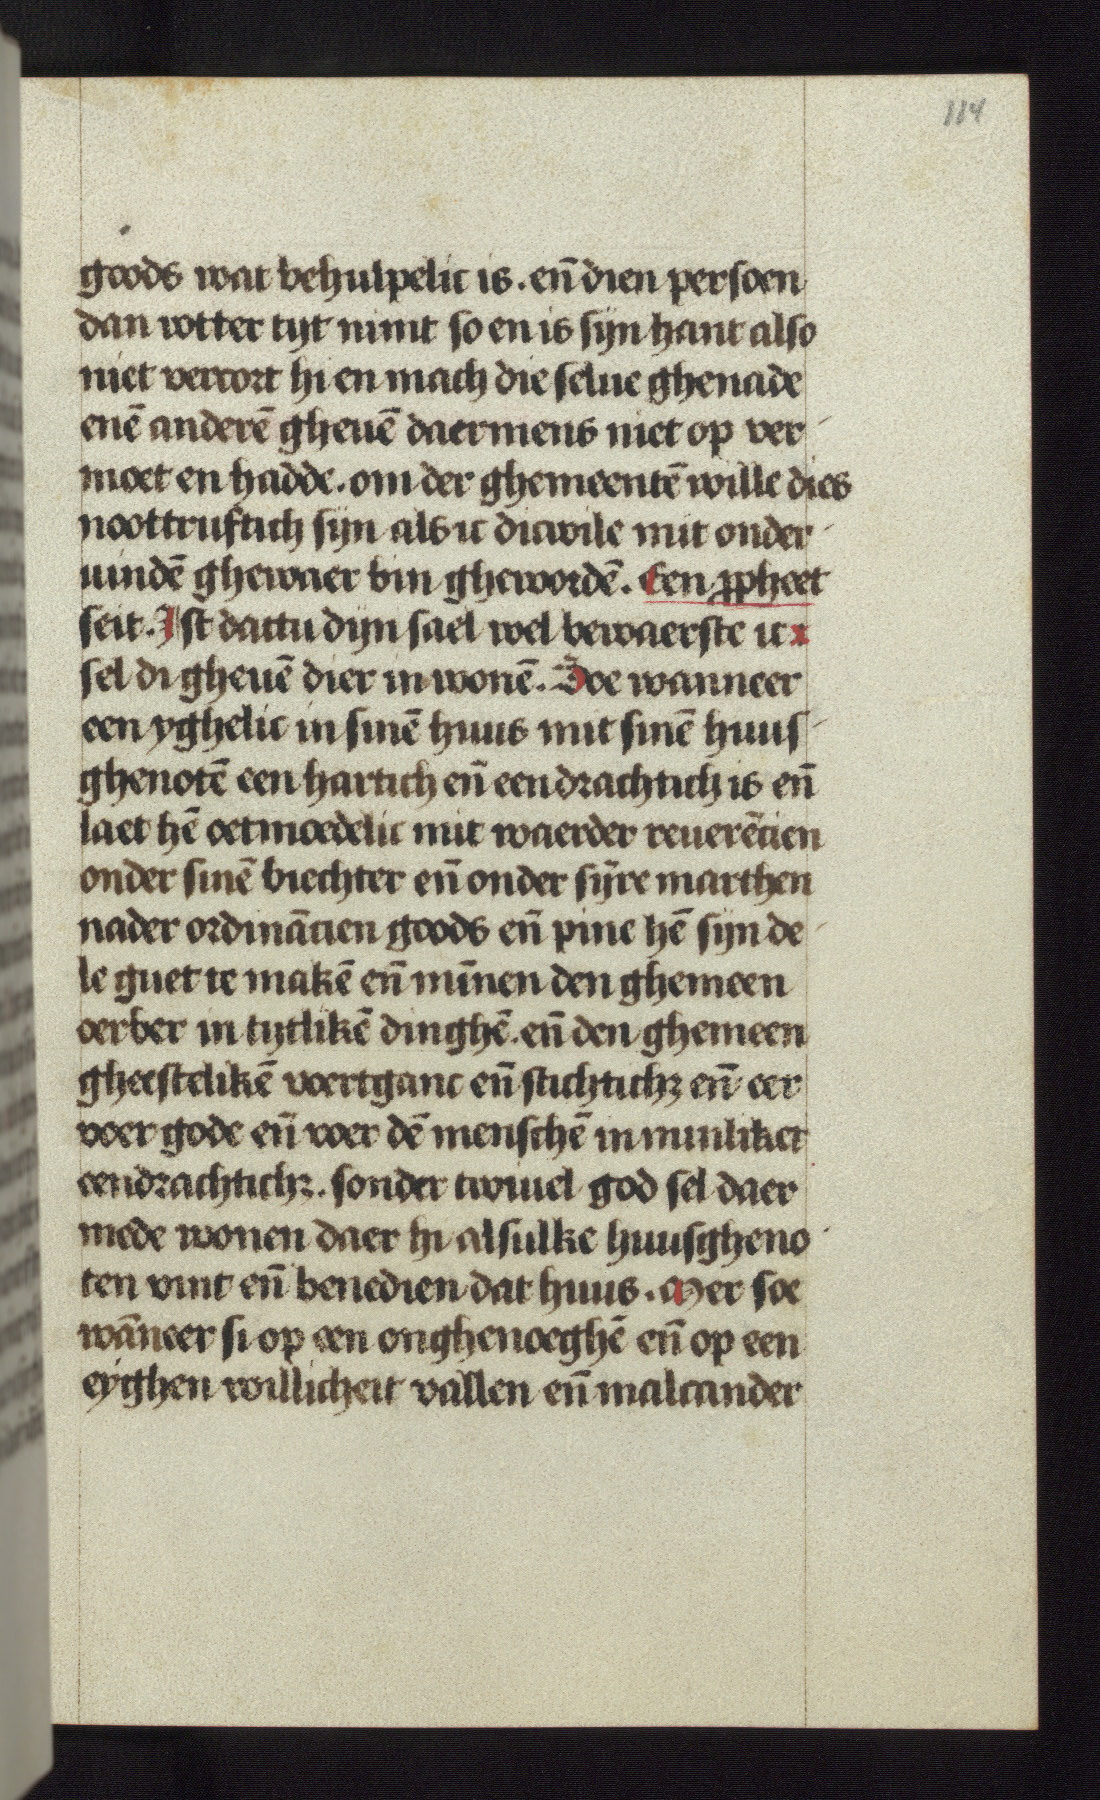 114
goods wat behulpelic is. en̄ dien persoen
dan wtter tyt nimt so en is syn hant also
niet vercort hi en mach die selue ghenade
enē anderē gheuē daermens niet op ver
moet en hadde. om der ghemeentē wille dies
noottruftich syn als ic dicwile mit onder
uindē ghewaer bin ghewordē. Een ꝓpheet
seit. Ist dattu dyn sael wel bewaerste ic
sel di gheuē dier in wonē. Soe wanneer
een yghelic in sinē huus mit sinē huus
ghenotē een hartich en̄ eendrachtich is en̄
laet hē oetmoedelic mit waerder reuerēcien
onder sinē biechter en̄ onder sijre marthen
nader ordinācien goods en̄ pine hē syn de
le guet te makē en̄ mīnen den ghemeen
oerber in tytlikē dinghē. en̄ den ghemeen
gheestelikē voertganc en̄ stichtichꝫ en̄ eer
voer gode en̄ voer dē menschē in minliker
eendrachtichꝫ. sonder twiuel god sel daer
mede wonen daer hi alsulke huusgheno
ten vint en̄ benedien dat huus. Mer soe
wāneer si op een onghenoeghē en̄ op een
eyghen willicheit vallen en̄ malcander